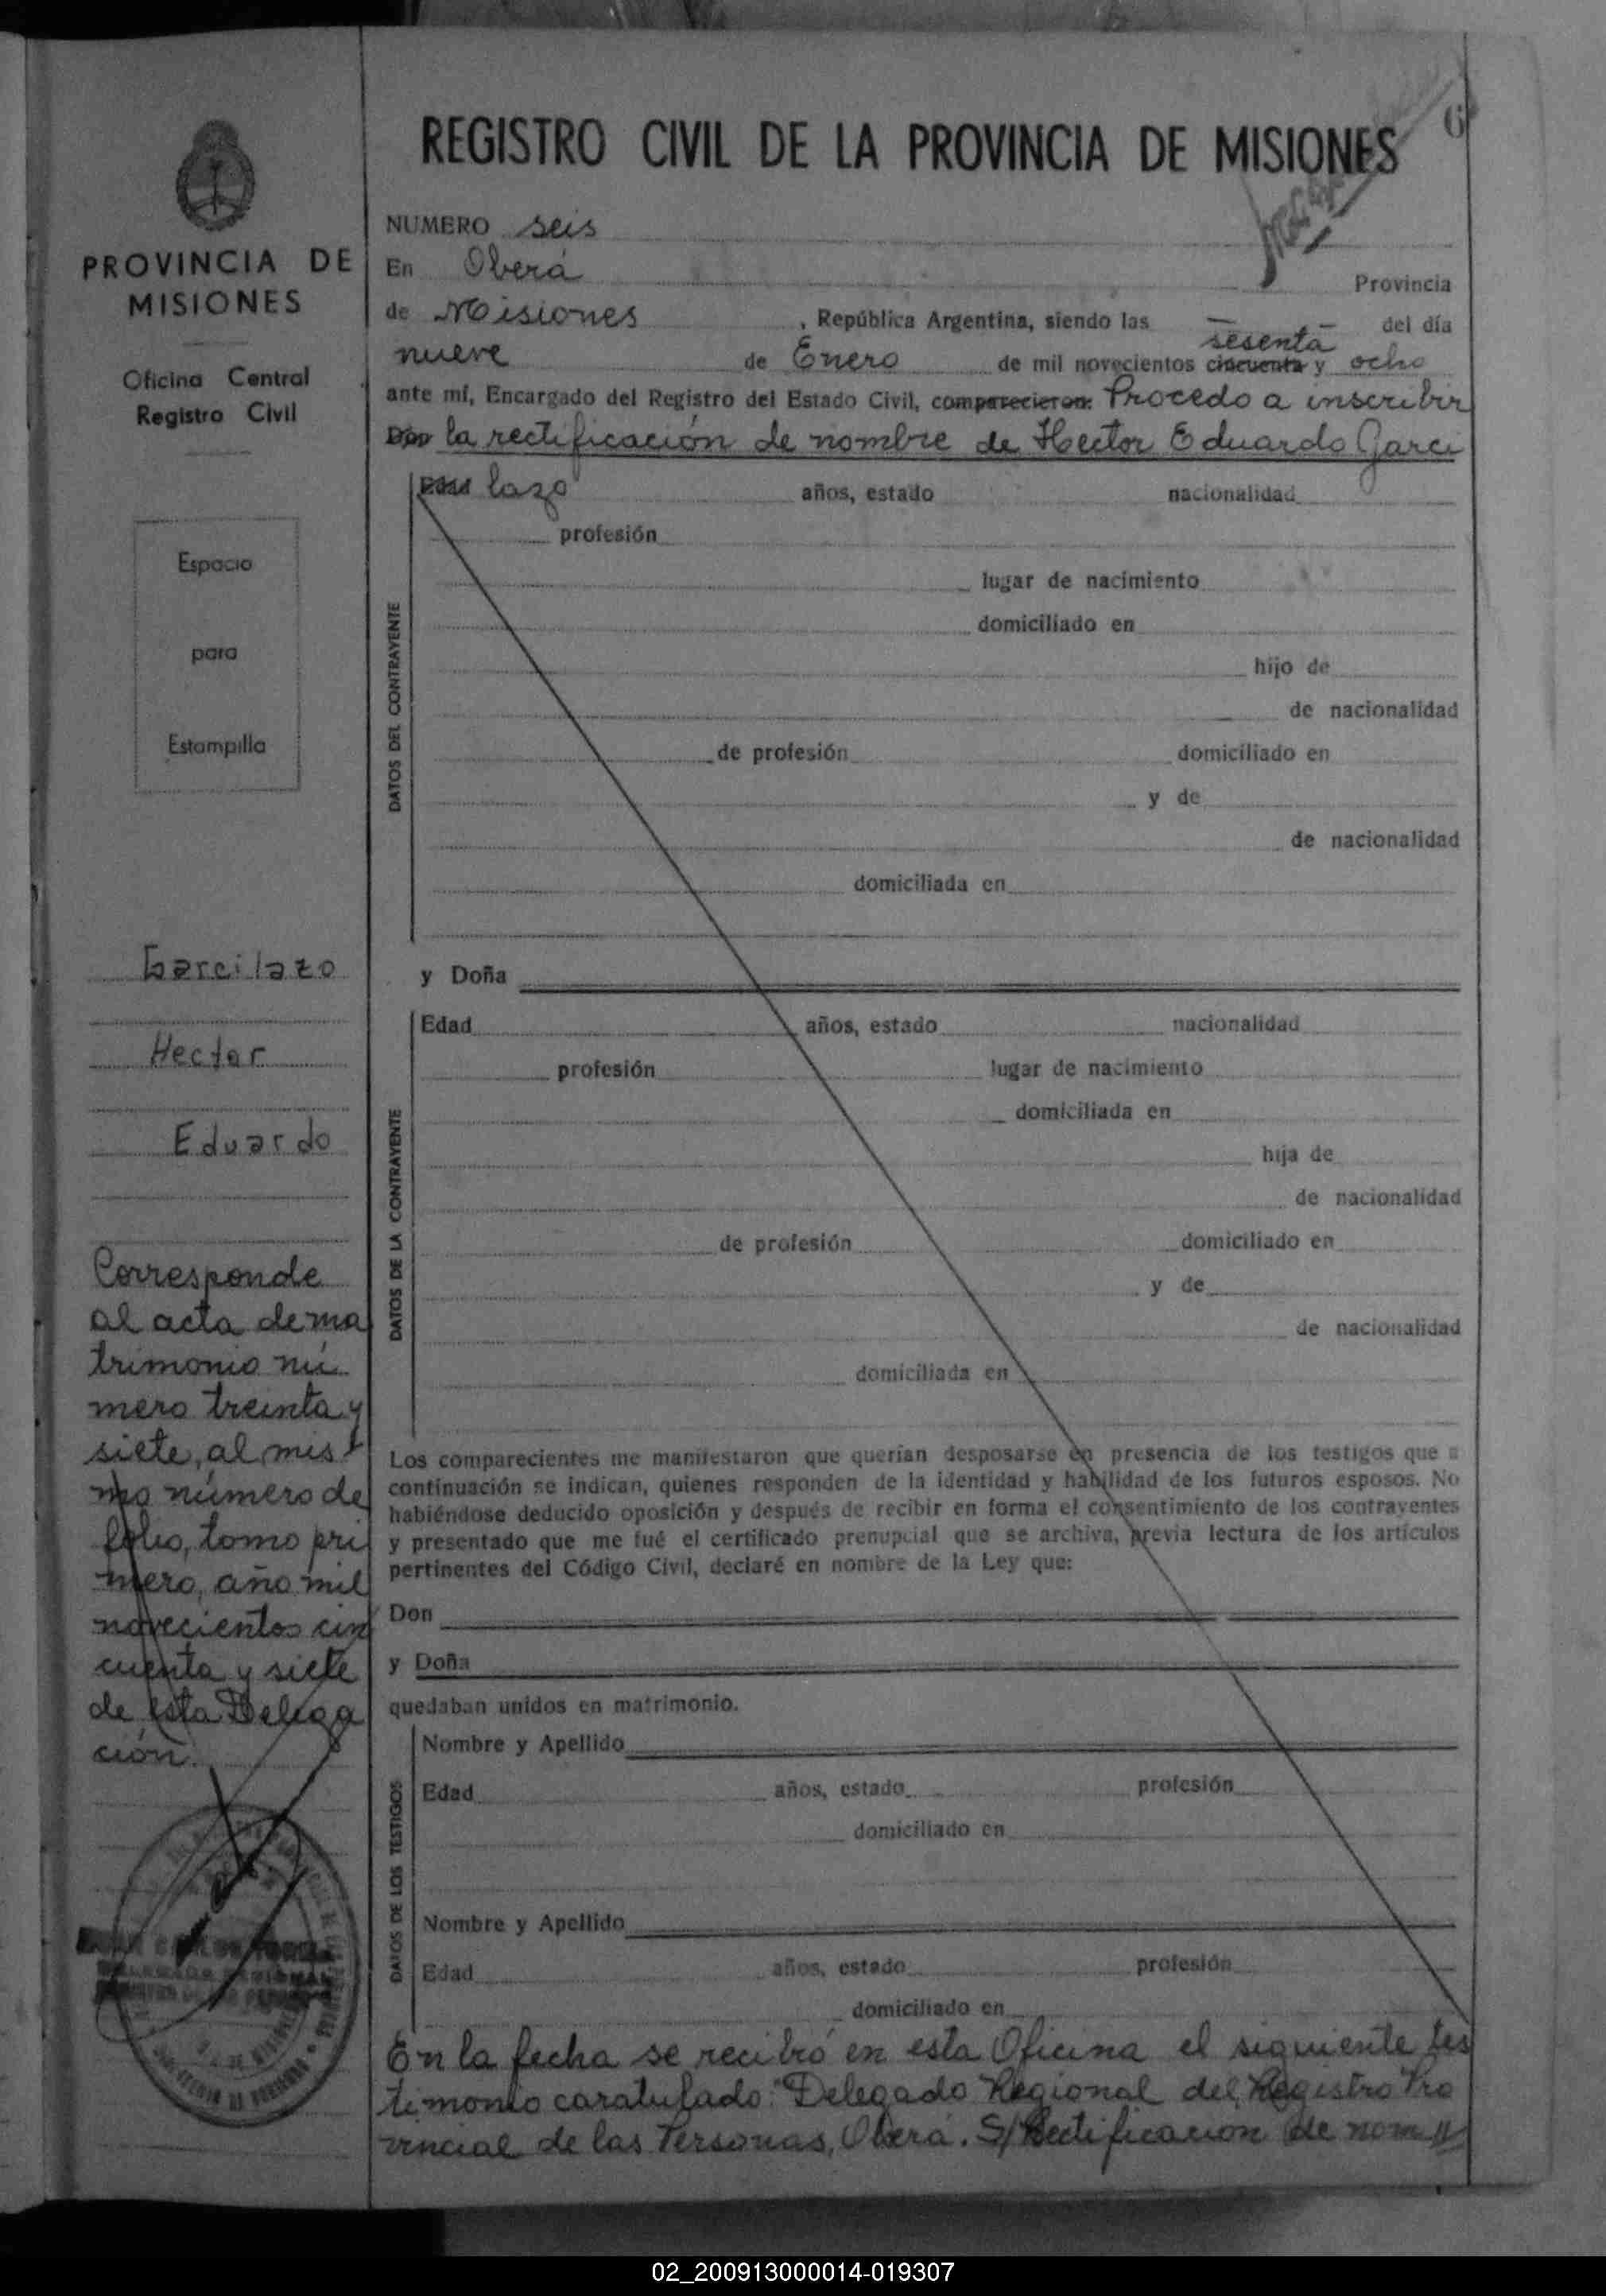 REGISTRO CIVIL DE LA PROVINCIA DE MISIONES
6
PROVINCIA DE
MISIONES
Oficina Central
Registro Civil
Espacio
para
Estampilla
Garcilazo
Hector
Eduardo
Corresponde
al acta de ma
trimonio nú
mero treinta y
siete, al mis
mo número de
folio, tomo pri
mero, año mil
novecientos cin
cuenta y siete
de esta Delega
ción.
NUMERO seis
En Oberá Provincia
de Misiones , República Argentina, siendo las — — del día
sesenta
nueve de Enero de mil novecientos cincuenta y ocho
ante mí, Encargado del Registro del Estado Civil, comparecieron: Procedo a inscribir
Don la rectificación de nombre de Hector Eduardo Garci
Edad lazo años, estado nacionalidad
profesión
lugar de nacimiento
domiciliado en
hijo de
de nacionalidad
de profesión domiciliado en
y de
de nacionalidad
domiciliada en
DATOS DEL CONTRAYENTE
y Doña
Edad años, estado nacionalidad
profesión lugar de nacimiento
domiciliada en
hija de
de nacionalidad
de profesión domiciliado en
y de
de nacionalidad
domiciliada en
DATOS DE LA CONTRAYENTE
Los comparecientes me manifestaron que querían desposarse en presencia de los testigos que a
continuación se indican, quienes responden de la identidad y habilidad de los futuros esposos. No
habiéndose deducido oposición y después de recibir en forma el consentimiento de los contrayentes
y presentado que me fué el certificado prenupcial que se archiva, previa lectura de los artículos
pertinentes del Código Civil, declaré en nombre de la Ley que:
Don
y Doña
quedaban unidos en matrimonio.
Nombre y Apellido
Edad años, estado profesión
domiciliado en
Nombre y Apellido
Edad años, estado profesión
domiciliado en
DATOS DE LOS TESTIGOS
En la fecha se recibió en esta Oficina el siguiente tes
timonio caratulado: "Delegado Regional del Registro Pro
vincial de las Personas, Oberá. S/ Rectificacion de nom//
02_200913000014-019307